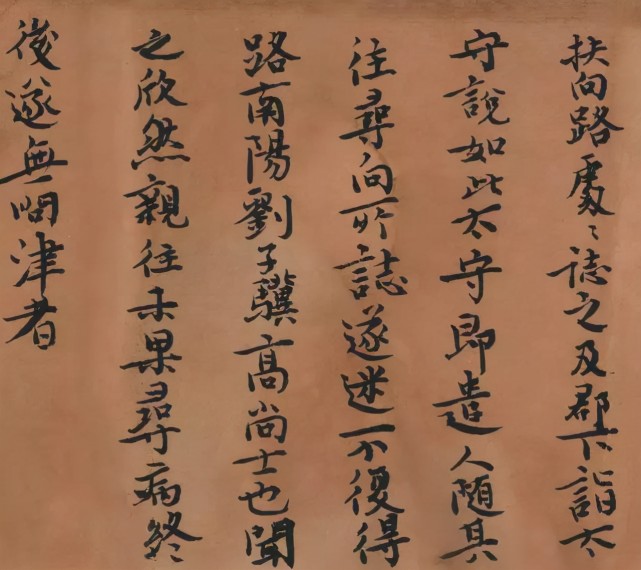 扶向路處〻誌之及郡下詣太
守說如此太守即遣人隨其
往尋向所誌遂迷一不復得
路南陽劉子驥高尚士也聞
之欣然親往未果尋病終
後遂無問津者